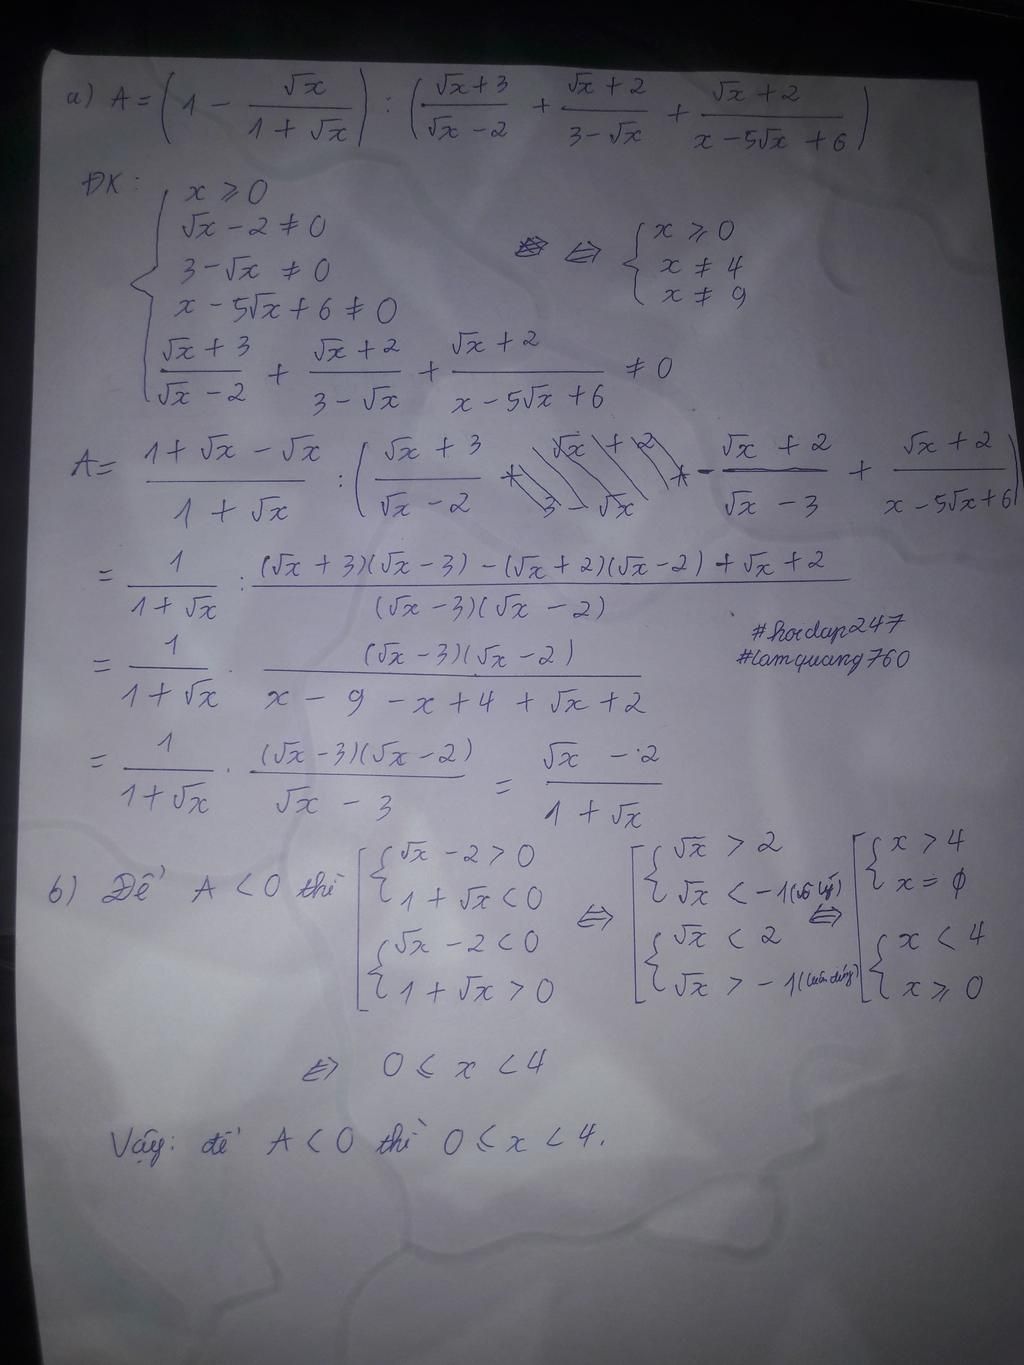 a) A = (1 - √x/(1 + √x)) : ((√x + 3)/(√x - 2) + (√x + 2)/(3 - √x) + (√x + 2)/(x - 5√x + 6))
ĐK: { x ≥ 0
√x - 2 ≠ 0
3 - √x ≠ 0
x - 5√x + 6 ≠ 0
(√x + 3)/(√x - 2) + (√x + 2)/(3 - √x) + (√x + 2)/(x - 5√x + 6) ≠ 0
⇔ { x ≥ 0
x ≠ 4
x ≠ 9
A = (1 + √x - √x)/(1 + √x) : ((√x + 3)/(√x - 2) - (√x + 2)/(√x - 3) + (√x + 2)/(x - 5√x + 6))
= 1/(1 + √x) : ((√x + 3)(√x - 3) - (√x + 2)(√x - 2) + √x + 2)/((√x - 3)(√x - 2))
#hoidap247
#lamquang760
= 1/(1 + √x) . ((√x - 3)(√x - 2))/(x - 9 - x + 4 + √x + 2)
= 1/(1 + √x) . ((√x - 3)(√x - 2))/(√x - 3) = (√x - 2)/(1 + √x)
b) Để A < 0 thì [ { √x - 2 > 0
1 + √x < 0
{ √x - 2 < 0
1 + √x > 0
⇔ [ { √x > 2
√x < -1 (vô lý)
{ √x < 2
√x > -1 (luôn đúng)
⇔ [ { x > 4
x = ϕ
{ x < 4
x ≥ 0
⇔ 0 ≤ x < 4
Vậy: để A < 0 thì 0 ≤ x < 4.